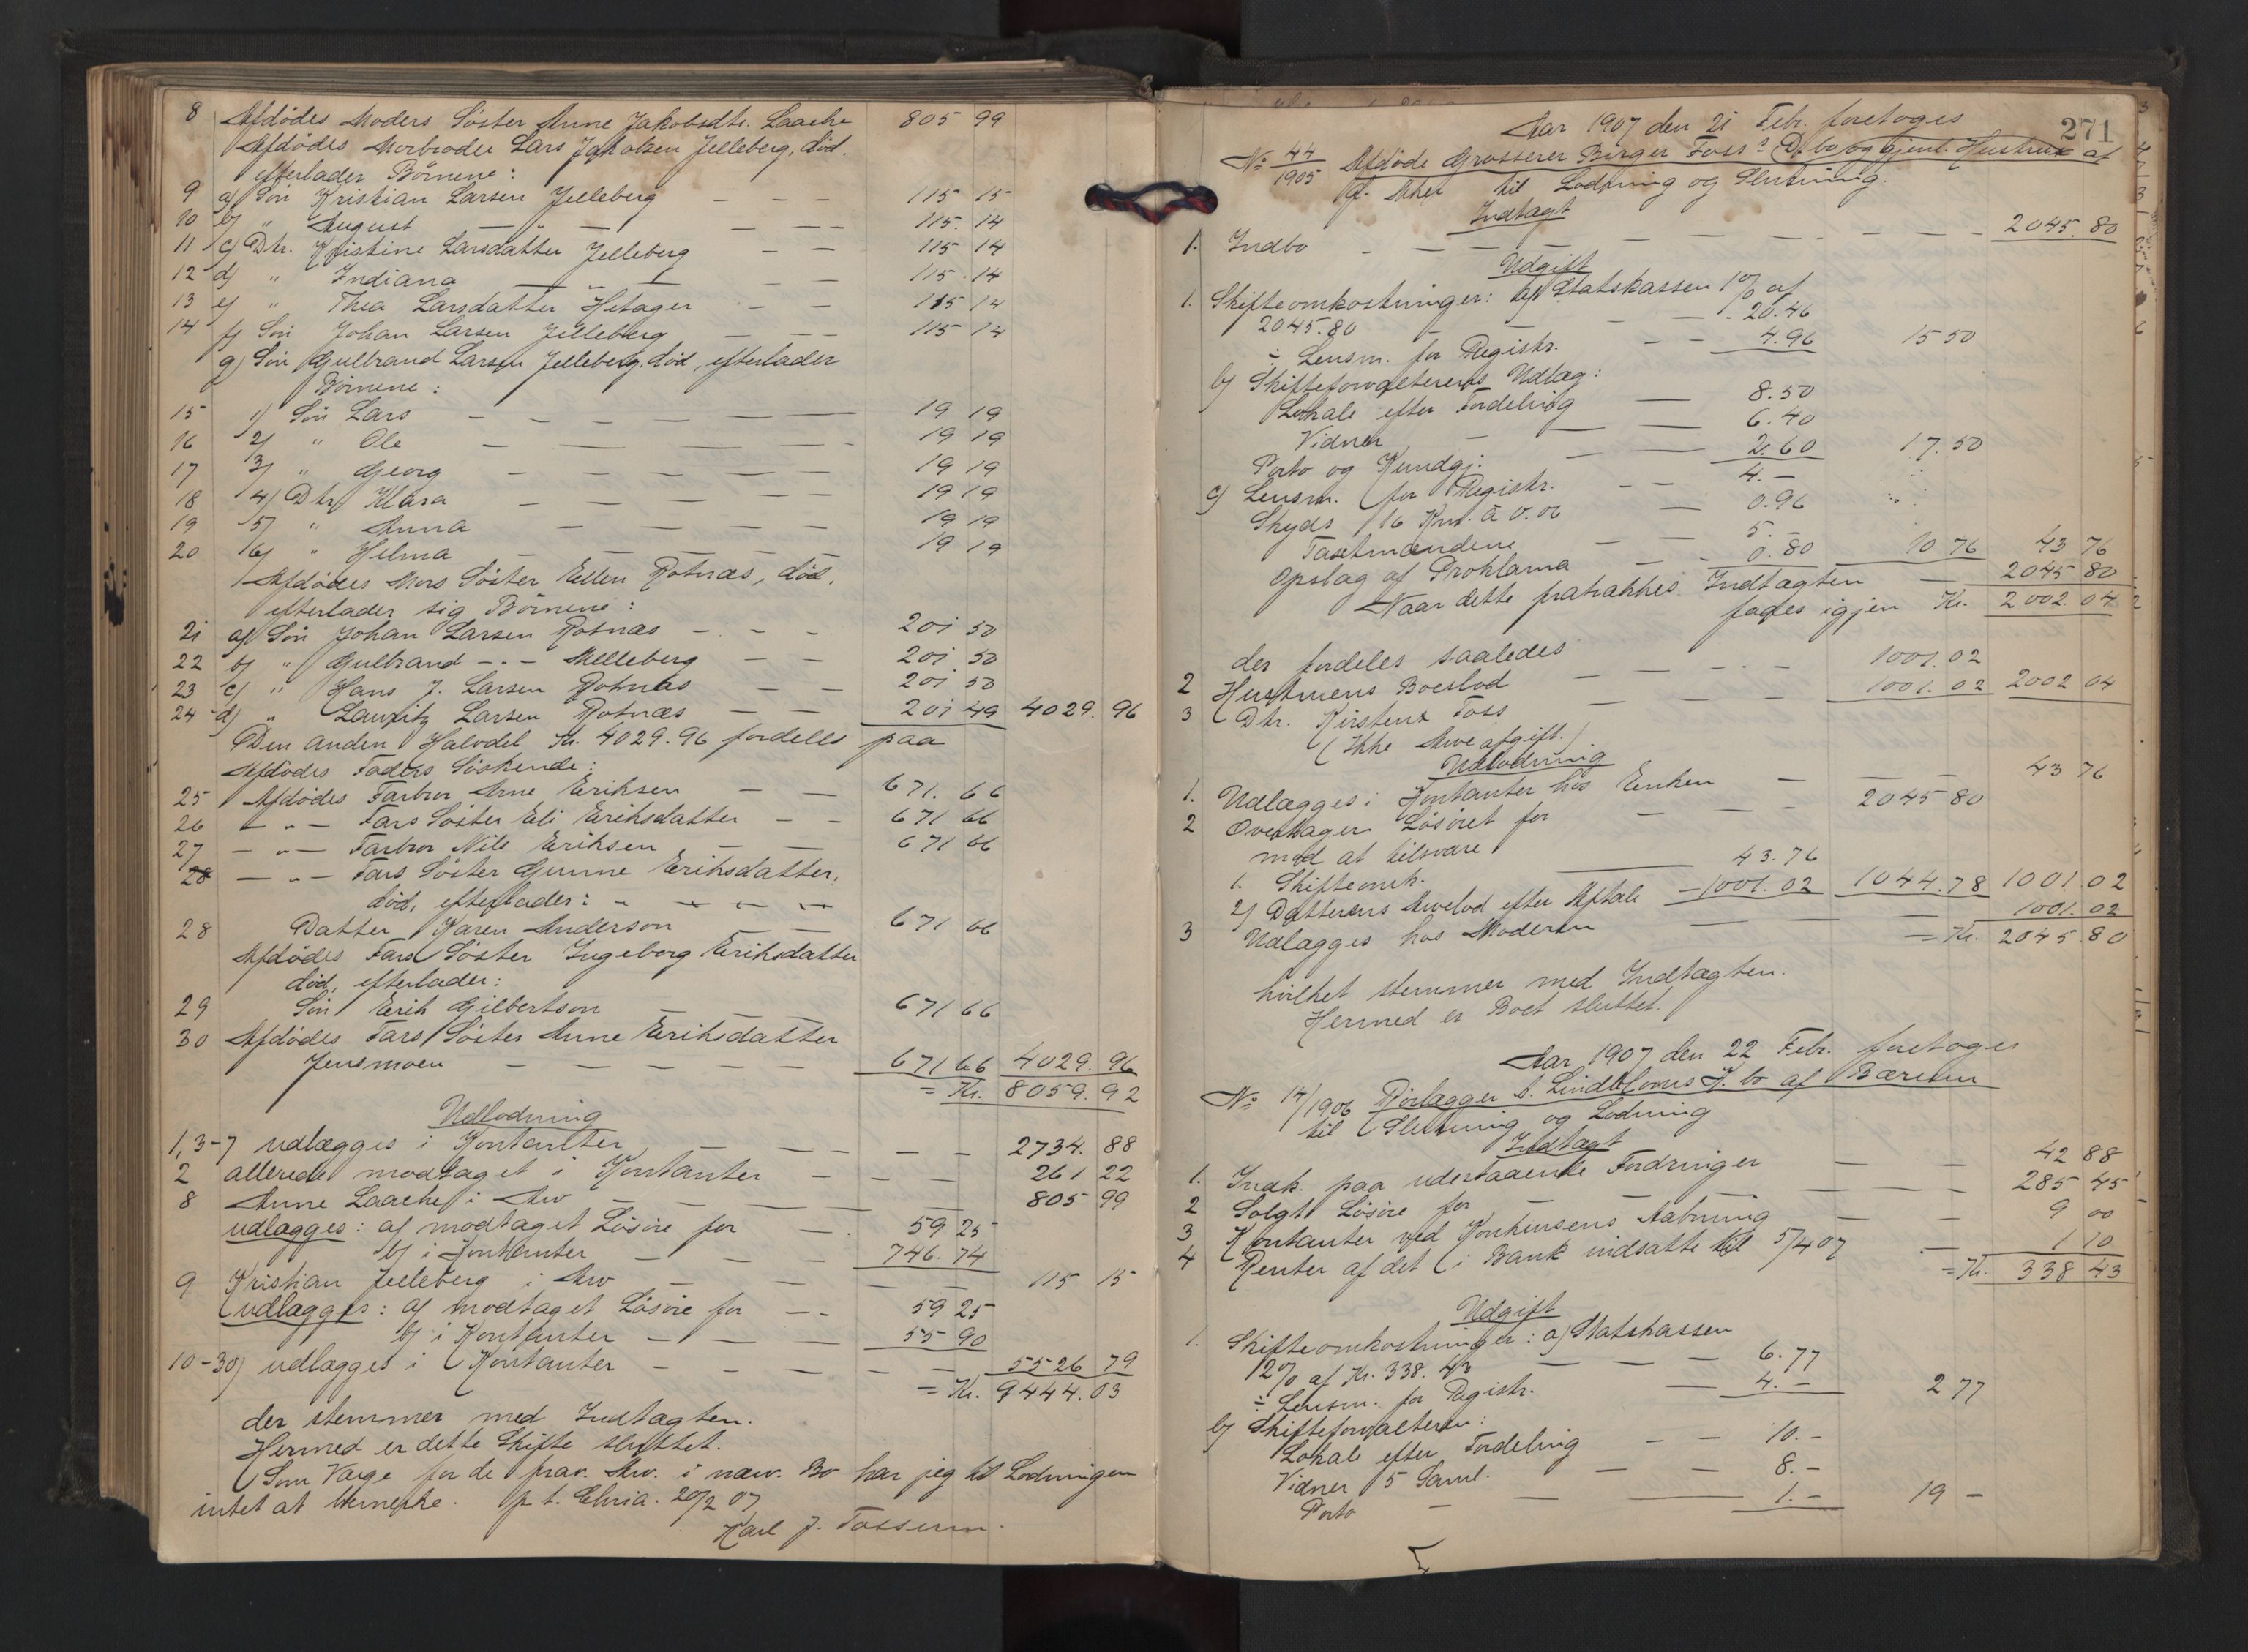 8 Afdødes Moders Søster Anne Jakobsdtr. Laache 805 99
Afdødes Morbroder Lars Jakobsen Jelleberg, død,
efterlader Børnene:
9 a) Søn Kristian Larsen Jelleberg — — — 115 15
10 b) " August — " — — — 115. 14
11 c) Dtr. Kristine Larsdatter Jelleberg — — 115 14
12 d) " Indiana — " — — — 115. 14
13 e) " Thea Larsdatter Hetager — — 115 14
14 f) Søn Johan Larsen Jelleberg — — — 115 14
g) Søn Gulbrand Larsen Jelleberg, død, efterlader
Børnene:
15 1) Søn Lars — — — — 19 19
16 2) " Ole — — — — 19 19
17 3) " Georg — — — — 19 19
18 4) Dtr. Klara — — — — 19 19
19 5) " Anna — — — — 19 19
20 6) " Helma — — — — 19 19
Afdødes Mors Søster Ellen Rotnæs, død,
efterlader sig Børnene:
21 a) Søn Johan Larsen Rotnæs — - - 201 50
22 b) " Gulbrand - " - Melleberg — — 201. 50
23 c) " Hans J. Larsen Rotnæs — — 201 50
24 d) " Lauritz Larsen Rotnæs — — 201 49 4029. 96
Den anden Halvdel Kr. 4029.96 fordeles paa
Afdødes Faders Søskende:
25 Afdødes Farbror Arne Eriksen — — 671. 66
26 — " — Fars Søster Eli Eriksdatter — - 671 66
27 — " — Farbror Nils Eriksen — — 671 66
28 — " — Fars Søster Gunne Eriksdatter,
død, efterlader:
28 Datter Karen Anderson — — 671 66
Afdødes Fars Søster Ingeborg Eriksdatter
død, efterlader:
29 Søn Erik Gilbertson — — 671 66
30 Afdødes Fars Søster Anne Eriksdatter
Jensmoen — — — — — 671 66 4029. 96
= Kr. 8059. 92
Udlodning
1, 3-7 udlægges i Kontanter — — — — 2734. 88
2 allerede modtaget i Kontanter — — — 261 22
8 Anne Laache i Arv — — — 805 99
udlægges: a) modtaget Løsøre for — 59 25
b) i Kontanter — — — 746. 74
9 Kristian Jelleberg i Arv — — — 115 15
udlægges: a) modtaget Løsøre for — - 59 25
b) i Kontanter — — — 55 90
10-30) udlægges i Kontanter — — — — 5526 79
= Kr. 9444. 03
der stemmer med Indtægten.
Hermed er dette Skifte sluttet.
Som Værge for de frav. Arv. i nærv. Bo har jeg til Lodningen
intet at bemerke. p. t. Chria. 20/2 07
Karl J. Fossum.
271
Aar 1907 den 21 Febr. foretoges
No 44/1905 Afdøde Grosserer Birger Foss's D. bo og gjenl. Hustrus af
af Aker til Lodning og Slutning.
Indtægt
1. Indbo — — — — — — 2045. 80
Udgift
1. Skifteomkostninger: a) Statskassen 1 % af
2045.80 — — — 20.46
÷ Lensm. for Registr. — — 4.96 15 50
b) Skifteforvalterens Udlæg:
Lokale efter Fordeling — 8.50
Vidner — — — 6.40
Porto og Kundgj. — — 2.60 17.50
c) Lensm. for Registr. — - 4. —
Skyds 16 Km. à 0.06 — 0.96
Taxtmændene — — 5. —
Opslag af Proklama — - 0.80 10 76 43 76
Naar dette fratrækkes Indtægten — 2045 80
faaes igjen Kr. 2002. 04
der fordeles saaledes
2 Hustruens Boeslod — — - — 1001. 02
3 Dtr. Kirstens Foss — — — 1001. 02 2002 04
(Ikke Arveafgift.)
Udlodning
1. Udlægges i Kontanter hos Enken — — — 43 76
2 Overtager Løsøret for — — — 2045 80
mod at tilsvare
1. Skifteomk. — 43.76
2) Datterens Arvelod efter Aftale — 1001.02 1044.78 1001. 02
3 Udlægges hos Moderen — — 1001. 02
= Kr. 2045. 80
hvilket stemmer med Indtægten.
Hermed er Boet sluttet.
Aar 1907 den 22 Febr. foretoges
No 14/1906 Rørlægger S. Lindbloms K. bo af Bærum
til Slutning og Lodning
Indtægt
1. Indk. paa udestaaende Fordringer — — 42 88
2 Solgt Løsøre for — — — — 285 45
3 Kontanter ved Konkursens Aabning — — 9 00
4 Renter af det i Bank indsatte til 5/4 07 — 1 10
= Kr. 338 43
Udgift
1. Skifteomkostninger: a) Statskassen
2 % af Kr. 338. 43 — — — 6.77
÷ Lensm. for Registr. — 4. — 2 77
b) Skifteforvalteren:
Lokale efter Fordeling — — 10. —
Vidner 5 Saml. — — 8. —
Porto — — — 1. — 19 —